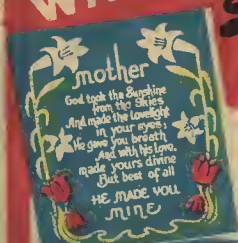 mother
God took the Sunshine
from the Skies
And made the Lovelight
in your eyes;
He gave you breath
And with his love,
made yours divine
But best of all
HE MADE YOU
MINE